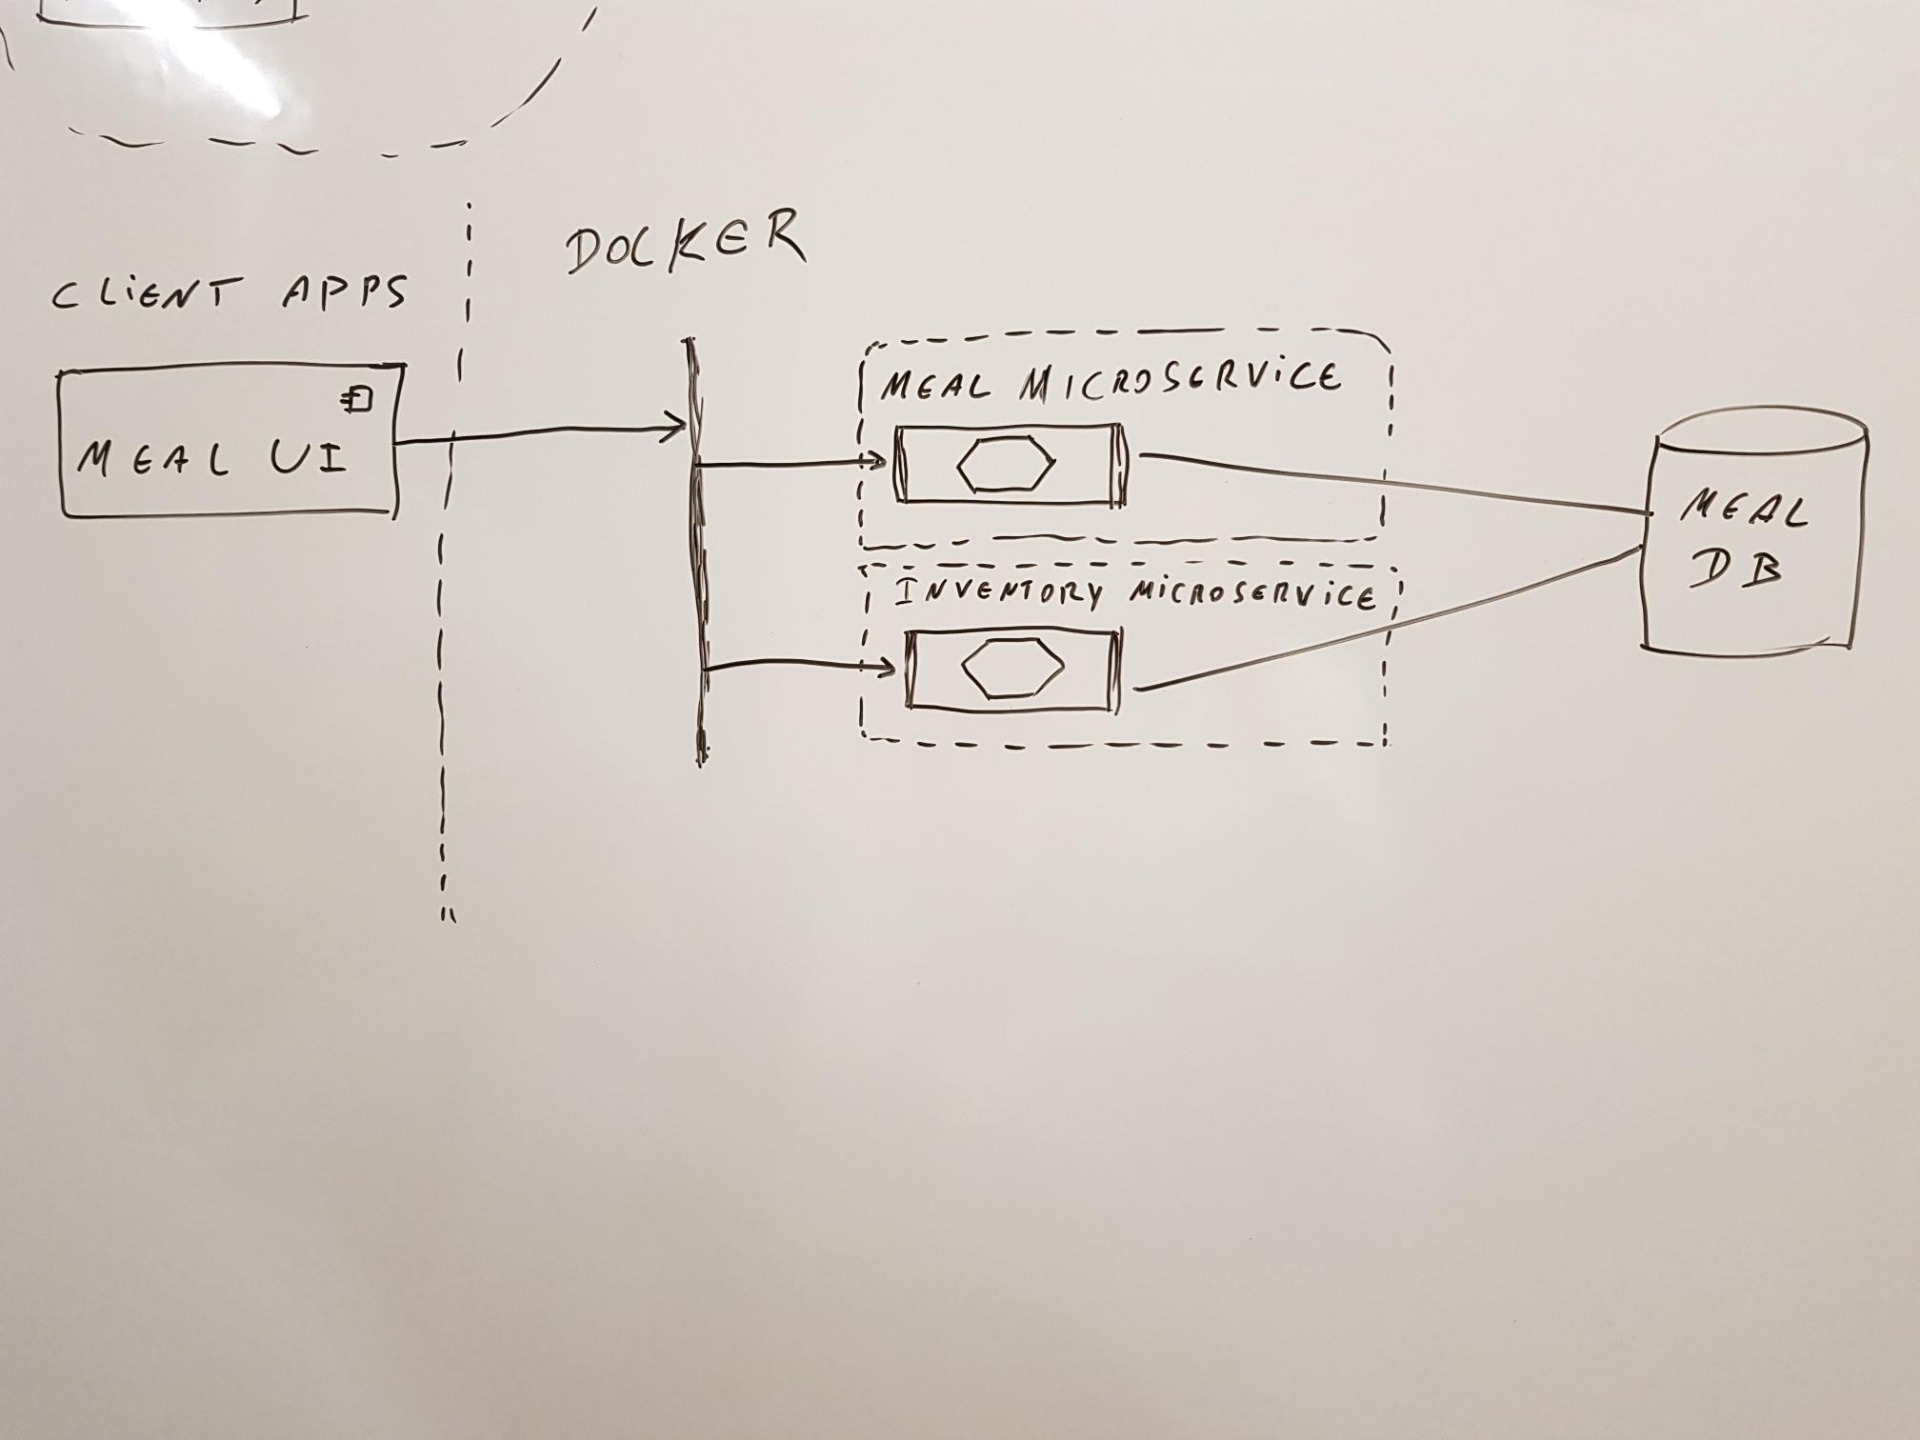 DOCKER
CLiENT APPS
MEAL UI
MEAL MICROSERViCE
INVENTORY MiCROSERViCE
MEAL
DB